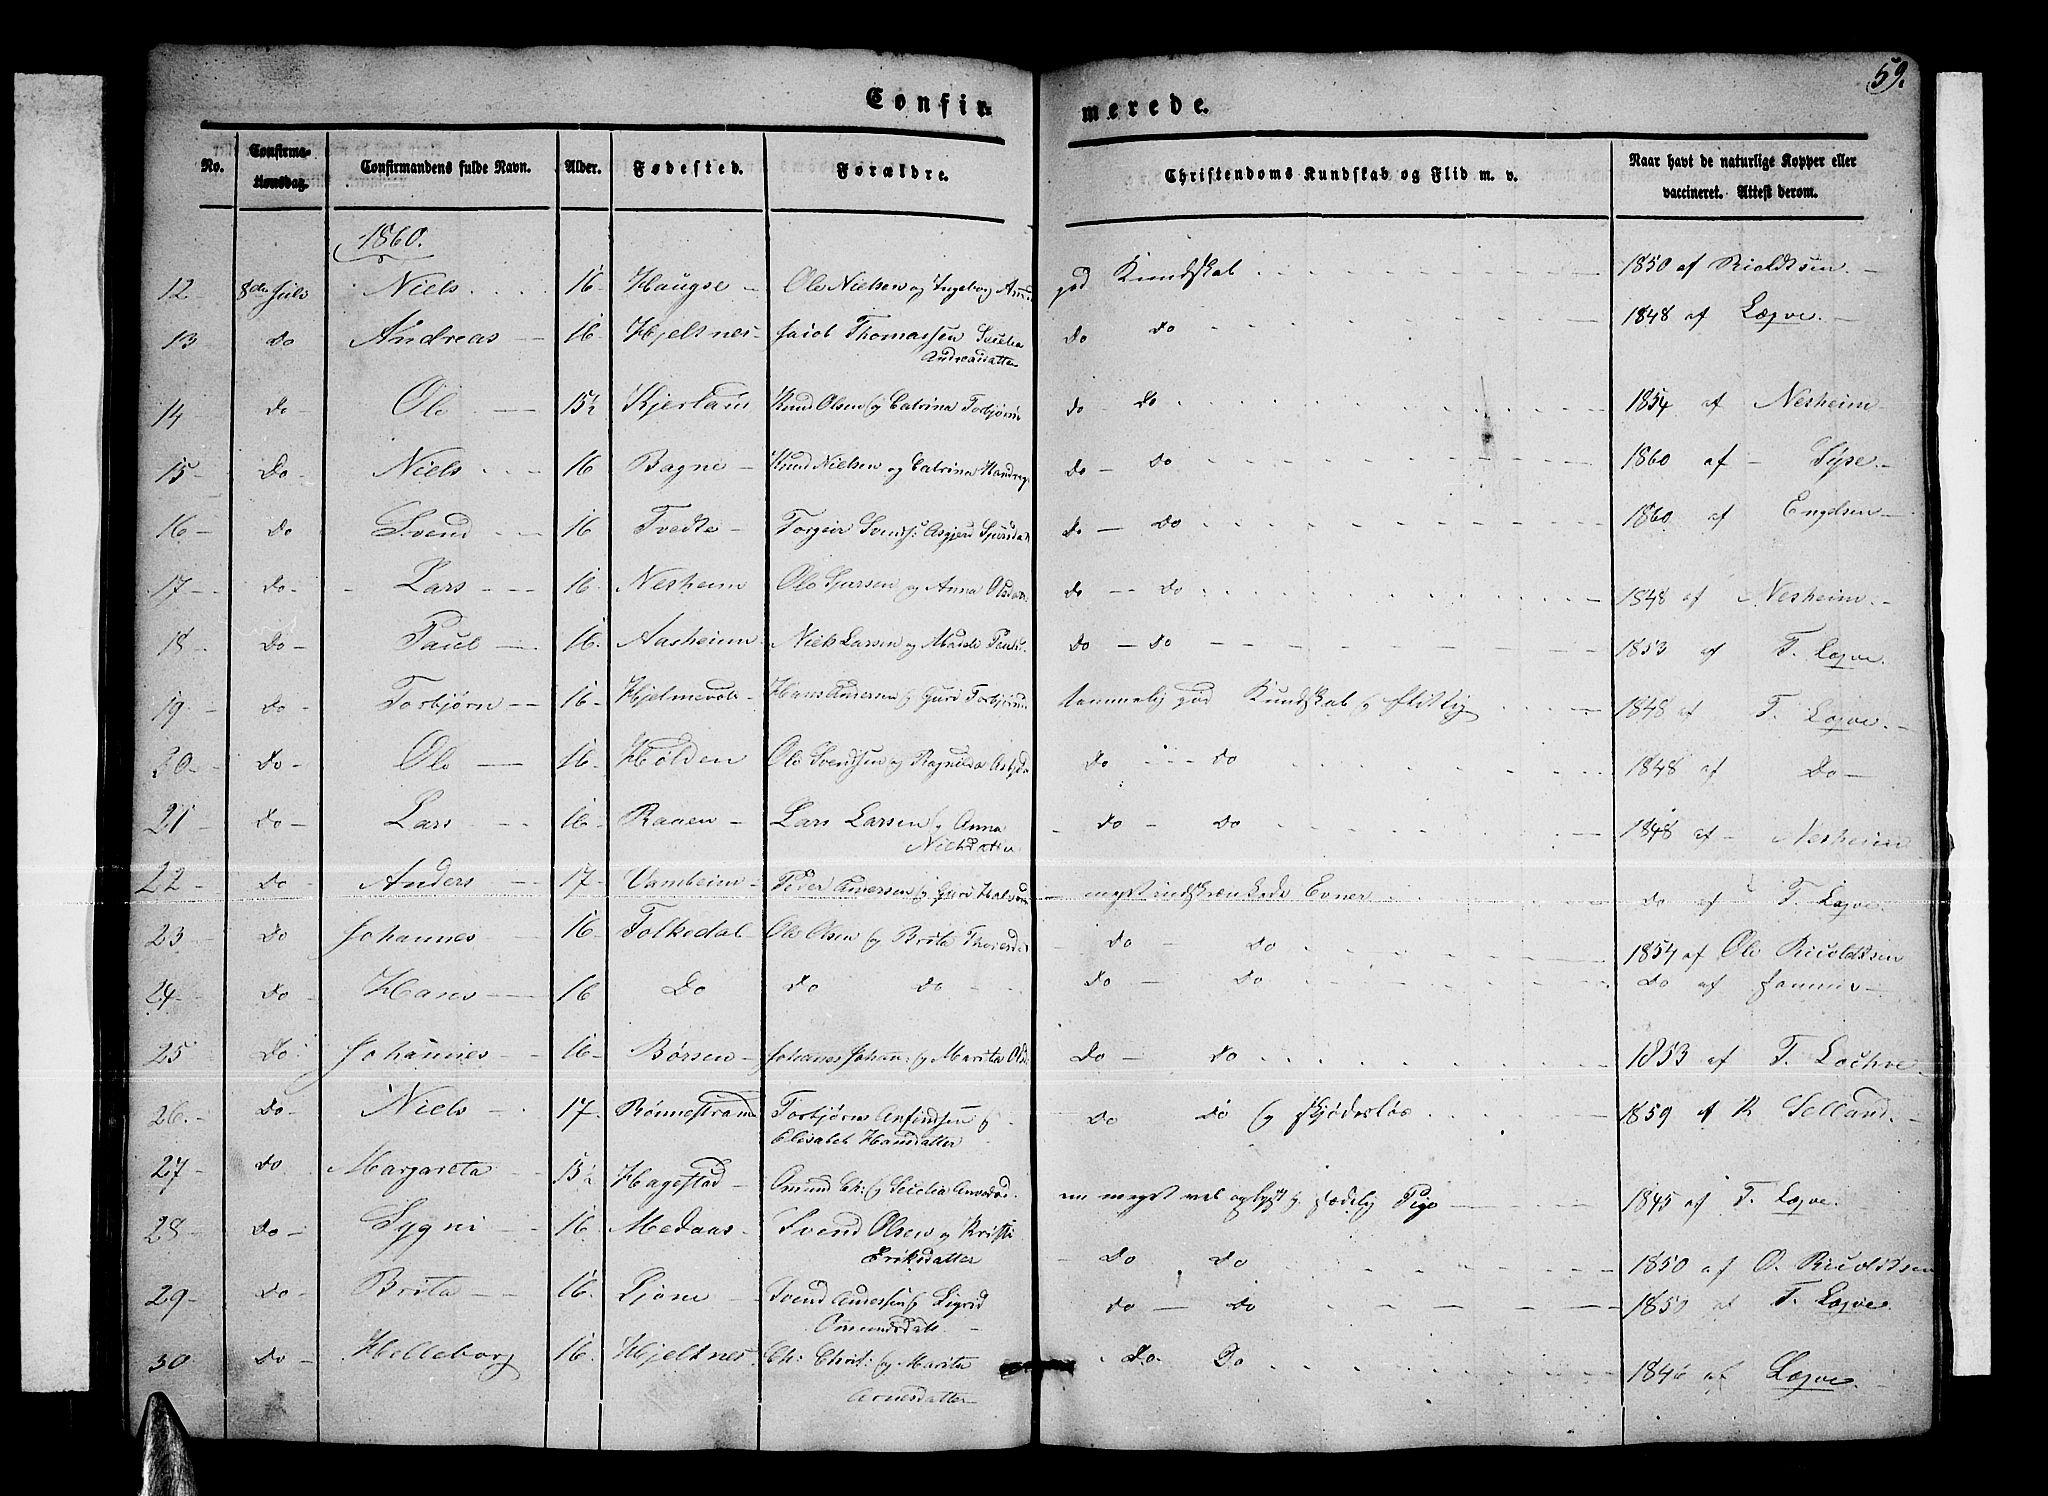 59.
Confir= merede.
No. Confirma=tionsdag. Confirmandens fulde Navn. Alder. Fødested. Forældre. Christendoms Kundskab og Flid m. v. Naar havt de naturlige Kopper eller vaccineret. Attest derom.
1860.
12 8de Juli Niels 16 Haugse Ole Nielsen og Ingeborg god Kundskab 1850 af
13 Do Andreas 16 Hjeltnes Jacob Thomassen Secelia Andreasdatter Do Do 1848 af Lægve.
14 Do Ole 15½ Kjerland Knud Olsen og Catrina Torbjörns Do Do 1854 af Nesheim
15 Do Niels 16 Bagne Knud Nielsen og Catrina Do Do 1860 af Syse
16 Do Svend 16 Tvedte Torgeir Svends: Asgjerd Sjursdatt Do Do 1860 af Engelsen
17 Do Lars 16 Nesheim Ole Sjursen og Anna Olsdatter Do Do 1848 af Nesheim
18 Do Paul 16. Aasheim Niels Larsen og Do Do 1853 af T. Legve.
19 Do Torbjørn 16 Hjelmevole Hans Amersen og Guri Torbjörnsd temmelig god Kundskab og flittig 1848 af T. Legve
20 Do Ole 16. Hølden Ole Svendsen og Ragnilda Do Do 1848 af Do
21 Do Lars 16 Raaen Lars Larsen og Anna Nielsdatter Do Do 1848 af Nesheim
22 Do Anders 17 Vambeim Peder Amersen og Guri Halvors meget indskrænkede Evner Do af T. Legve.
23 Do Johannes 16 Folkedal Ole Olsen og Brita Do Do 1854 af Ole
24 Do Hans 16 Do Do Do Do Do Do af samme
25 Do Johannes 16 Børsen Johanes Johan: og Marita Olsd Do Do 1853 af T. Lochve
26. Do Niels 17. Rönnestrand Torbjørn Anfindsen og Elisabeth Hansdatter Do Do og skjødesløs 1859 af K Selland
27 Do Margareta 15½ Hagestad Omund Ch: og Secelia en meget vel oplyst og sædelig Pige 1845 af T. Legve.
28 Do Sygni 16 Medaas Svend Olsen og Kristi Eriksdatter Do Do 1850 af O.
29 Do Brita 16. Djøne Svend og Sigrid Omundsdatt. Do Do 1850 af T. Legve
30 Do Helleborg 16. Hjeltnes Ch: Christ: og Marita Arnesdatter Do. Do 1846 af Legve.